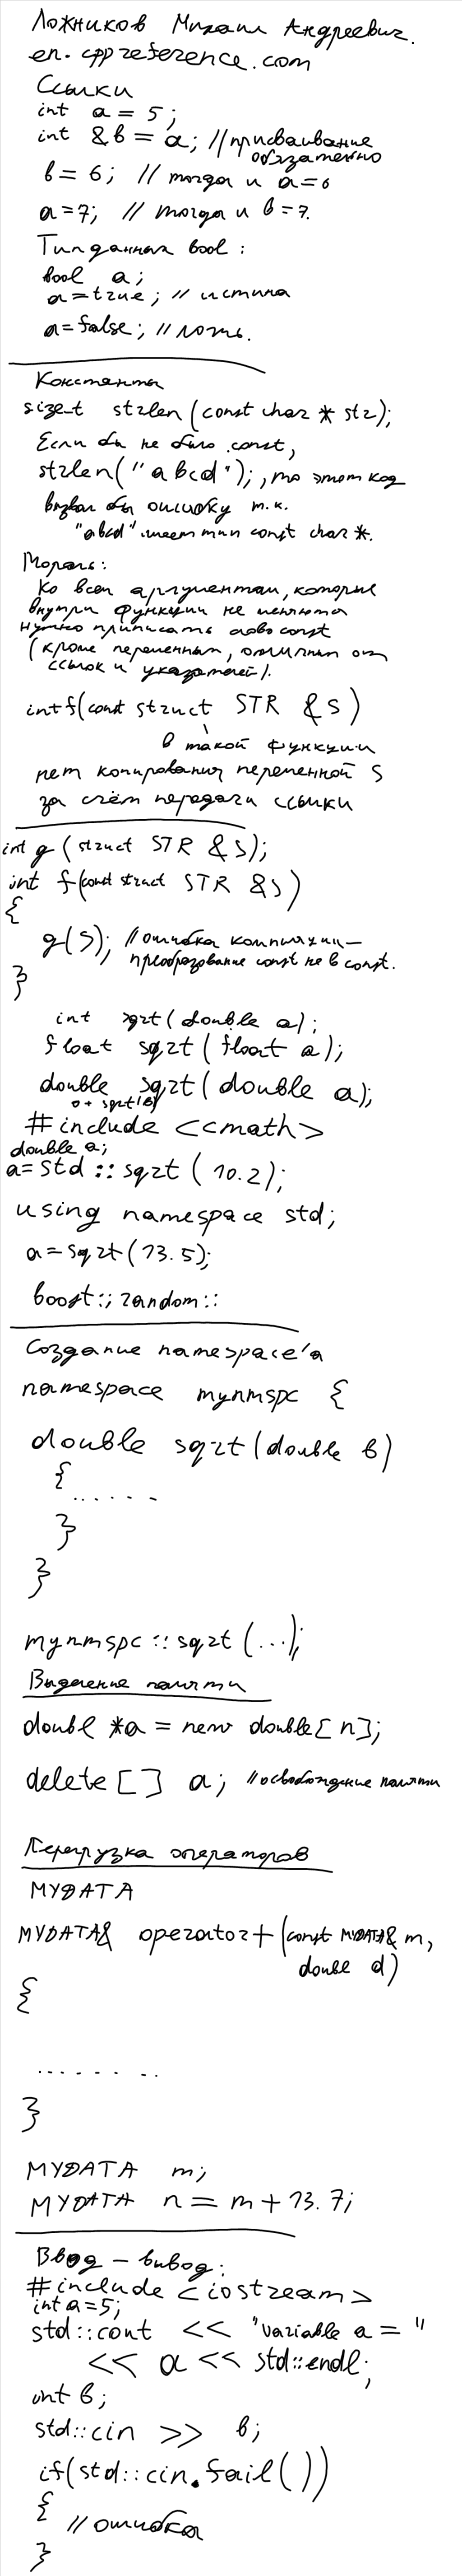 Ложников Михаил Андреевич.
en.cppreference.com
Ссылки
int a = 5;
int &b = a; // присваивание
обязательно
b = 6; // тогда и a=6
a=7; // тогда и b=7.
Тип данных bool :
bool a;
a=true; // истина
a=false; // ложь.
Константы
size_t strlen (const char * str);
Если бы не было const,
strlen("abcd"); , то этот код
вызвал бы ошибку т.к.
"abcd" имеет тип const char *.
Мораль:
Ко всем аргументам, которые
внутри функции не меняются
нужно приписать слово const
(кроме переменных, отличных от
ссылок и указателей).
int f(const struct STR &S)
в такой функции
нет копирования переменной S
за счёт передачи ссылки
int g (struct STR &S);
int f(const struct STR &S)
{
g(S); // ошибка компиляции –
преобразование const не в const.
}
int sqrt(double a);
float sqrt(float a);
double sqrt(double a);
#include <cmath>
double a;
a=std::sqrt(10.2);
using namespace std;
a=sqrt(13.5);
boost::random::
Создание namespace'а
namespace mynmspc {
double sqrt(double b)
{
......
}
}
mynmspc::sqrt(...);
Выделение памяти
doubl *a = new double[n];
delete [] a; // освобождение памяти
Перегрузка операторов
MYDATA
MYDATA& operator+(const MYDATA& m,
double d)
{
........
}
MYDATA m;
MYDATA n = m + 13.7;
Ввод – вывод:
#include <iostream>
int a=5;
std::cout << "variable a = "
<< a << std::endl;
int b;
std::cin >> b;
if(std::cin.fail())
{
// ошибка
}